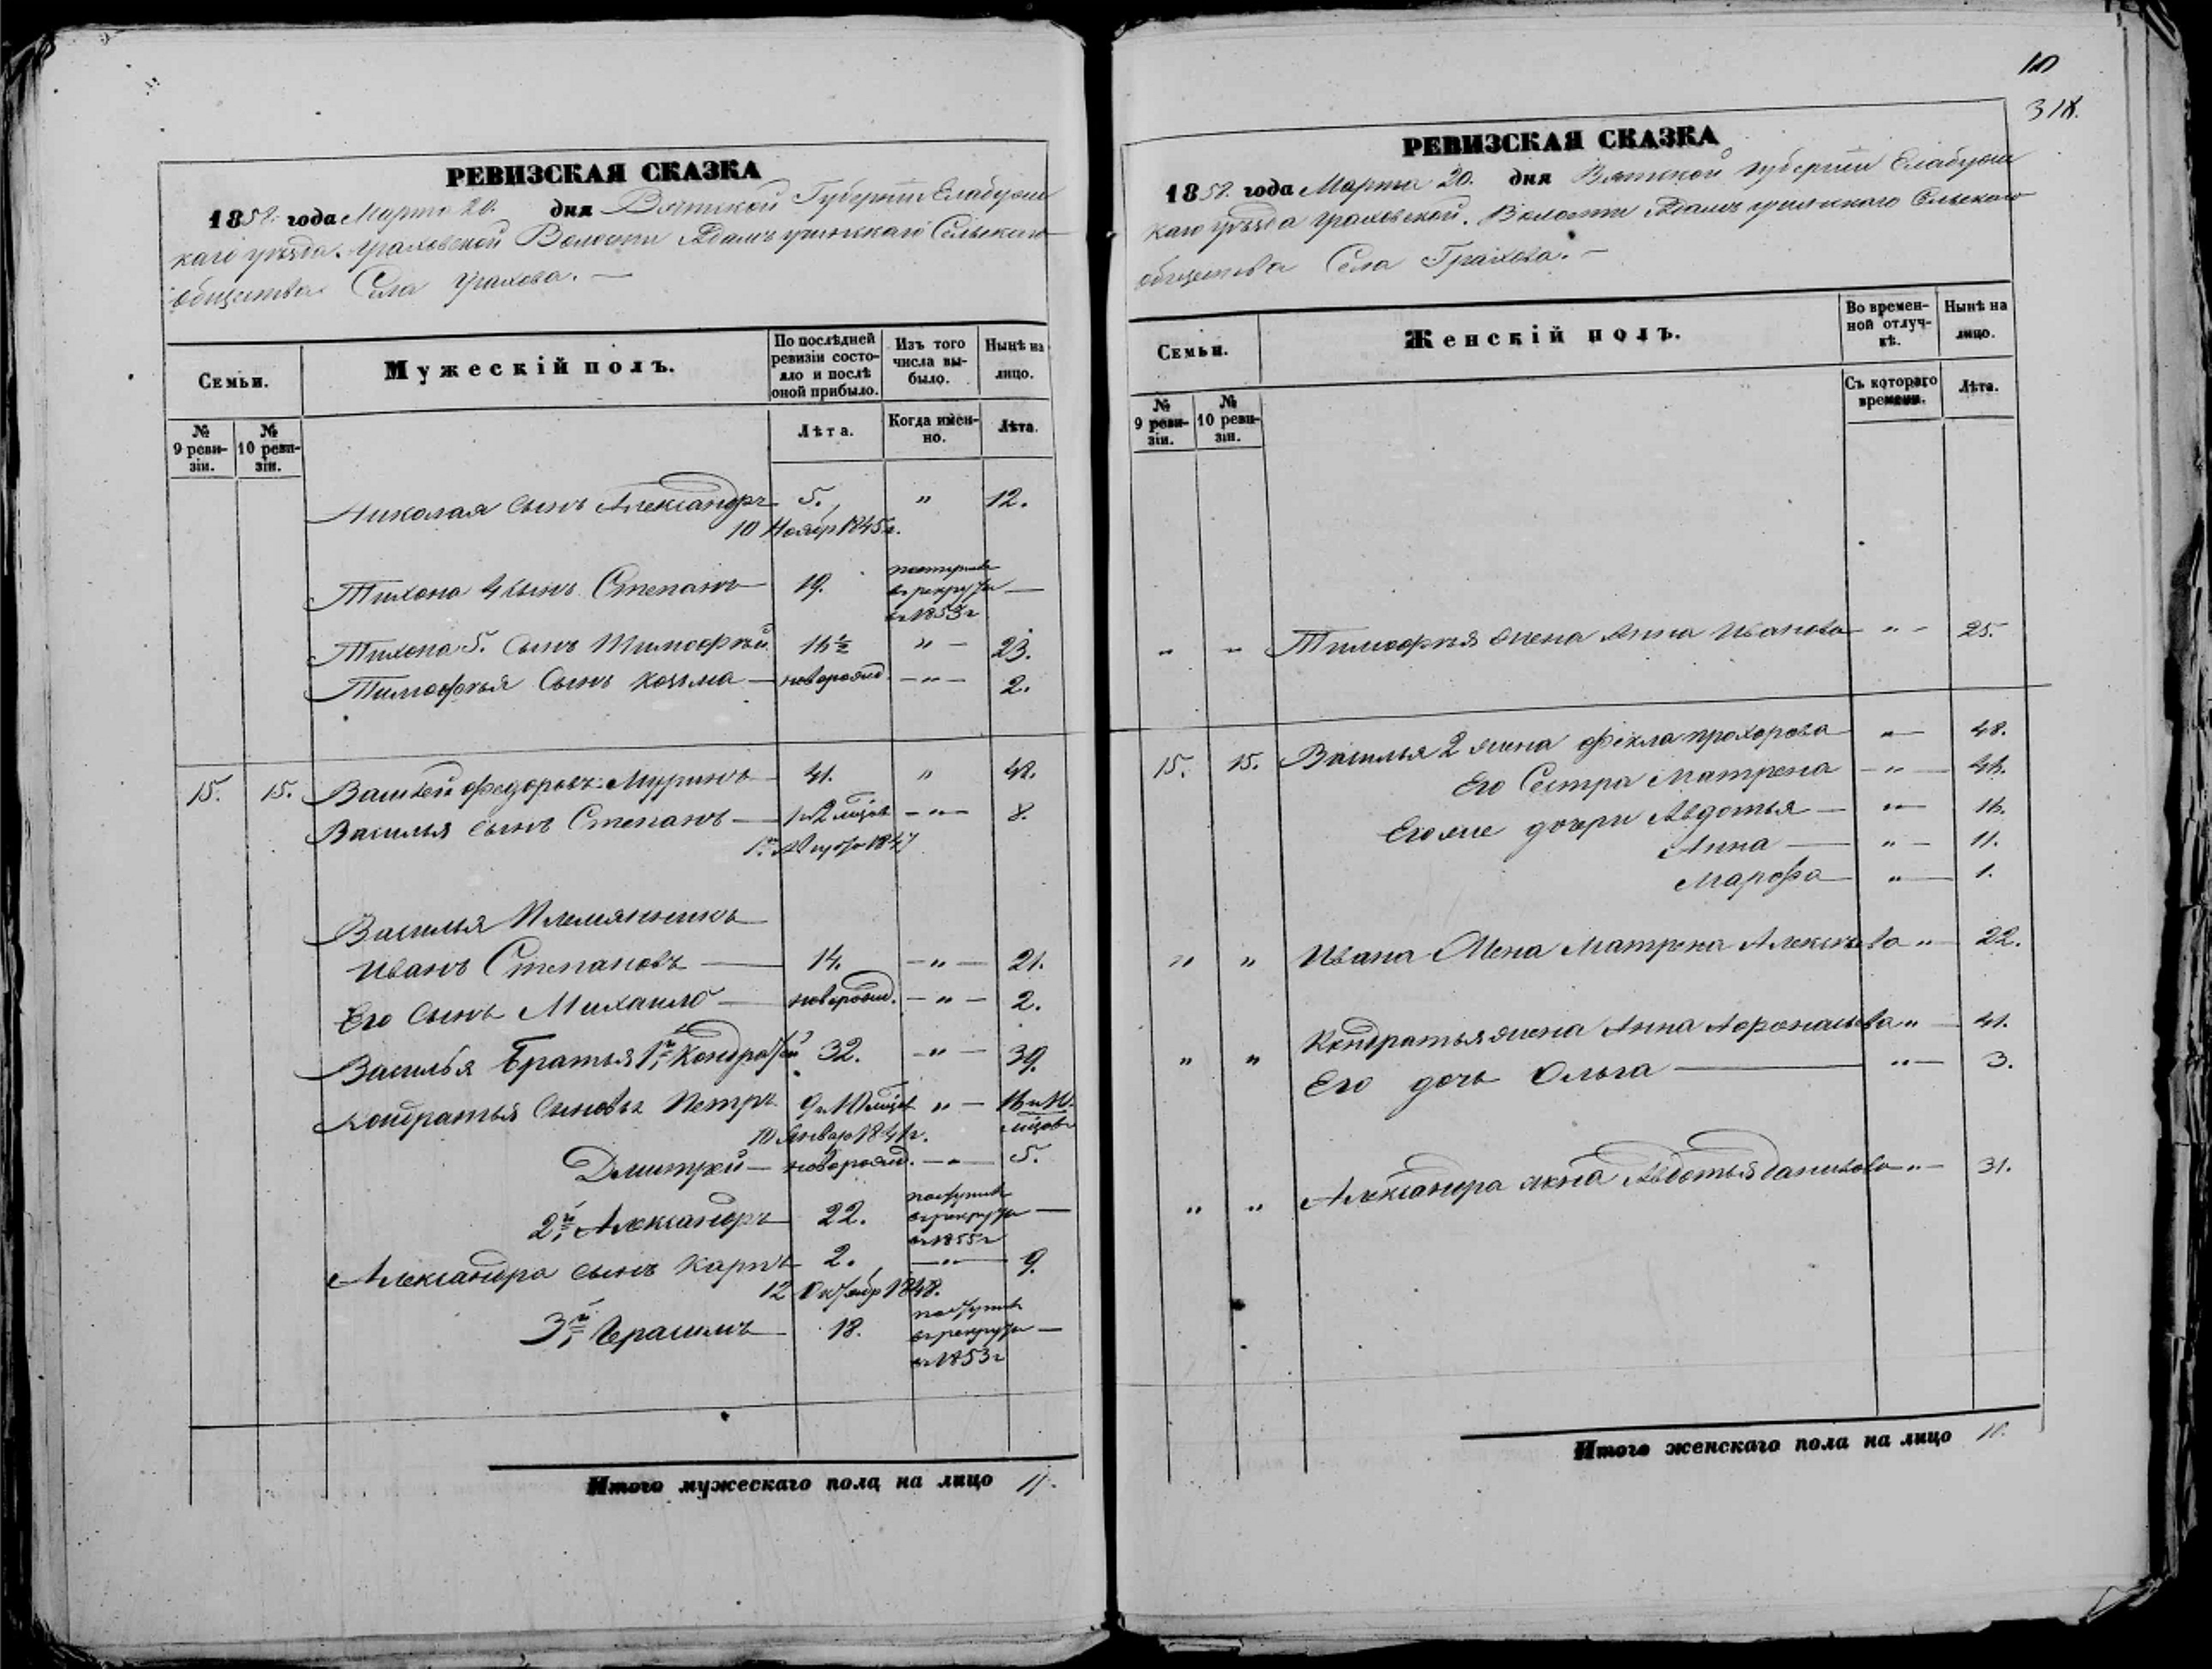 РЕВИЗСКАЯ СКАЗКА
1858 года Марта 20. дня Вятской Губернии Елабужс
каго уѣзда. Граховской Волости Адамъ учинскаго Сельскаго
общества Села Грахова. —
Семьи.
Мужескій полъ.
По послѣдней ревизіи состояло и послѣ оной прибыло.
Изъ того числа выбыло.
Нынѣ на лицо.
№ 9 ревизіи.
№ 10 ревизіи.
Лѣта.
Когда именно.
Лѣта.
Николая сынъ Александръ 5. " 12.
10 Ноябр 1845 г.
Тихона 4 сынъ Степанъ 19. поступилъ в рекруты в 1853 г —
Тихона 5. сынъ Тимофей 16½ " — 23.
Тимофея Сынъ Козма — новорожд. — " — 2.
15. 15. Василей Федоровъ Муринъ 41. " 48.
Василья сынъ Степанъ — 1 и 2 мѣсяц — " — 8.
Василья Племянникъ
Иванъ Степановъ — 14. — " — 21.
Его Сынъ Михаило — новорожд. — " — 2.
Василья Братья 1й Кондратей 32. — " — 39.
Кондратья Сыновья Петръ 9 и 10 мѣсяц " — 16 и 10. мѣсяцов
10 Январ 1841 г.
Дмитрей — новорожд. — " — 5.
2й Александръ 22. поступилъ в рекруты в 1855 г —
Александра сынъ Карпъ 2. — " — 9.
12 Октябр 1848.
3й Герасимъ 18. поступилъ в рекруты в 1853 г —
Итого мужескаго пола на лицо 11.
10
318.
РЕВИЗСКАЯ СКАЗКА
1858. года Марта 20. дня Вятской Губернии Елабужс
каго уѣзда Граховской. Волости Адамъ учинскаго Сельскаго
общества Села Грахова. —
Семьи.
Женскій полъ.
Во временной отлучкѣ.
Нынѣ на лицо.
№ 9 ревизіи.
№ 10 ревизіи.
Съ котораго времени.
Лѣта.
" " Тимофея жена Анна Иванова " — 25.
15. 15. Василья 2 жена Фекла Прохорова " — 48.
Его Сестра Матрена — " — 46.
Его же дочери Авдотья — " — 16.
Анна — " — 11.
Марфа — " — 1.
" " Ивана Жена Матрена Алексѣева " — 22.
" " Кондратья жена Анна Афонасьева " — 41.
Его дочь Ольга — " — 3.
" " Александра жена Авдотья Данилова " — 31.
Итого женскаго пола на лицо 10.